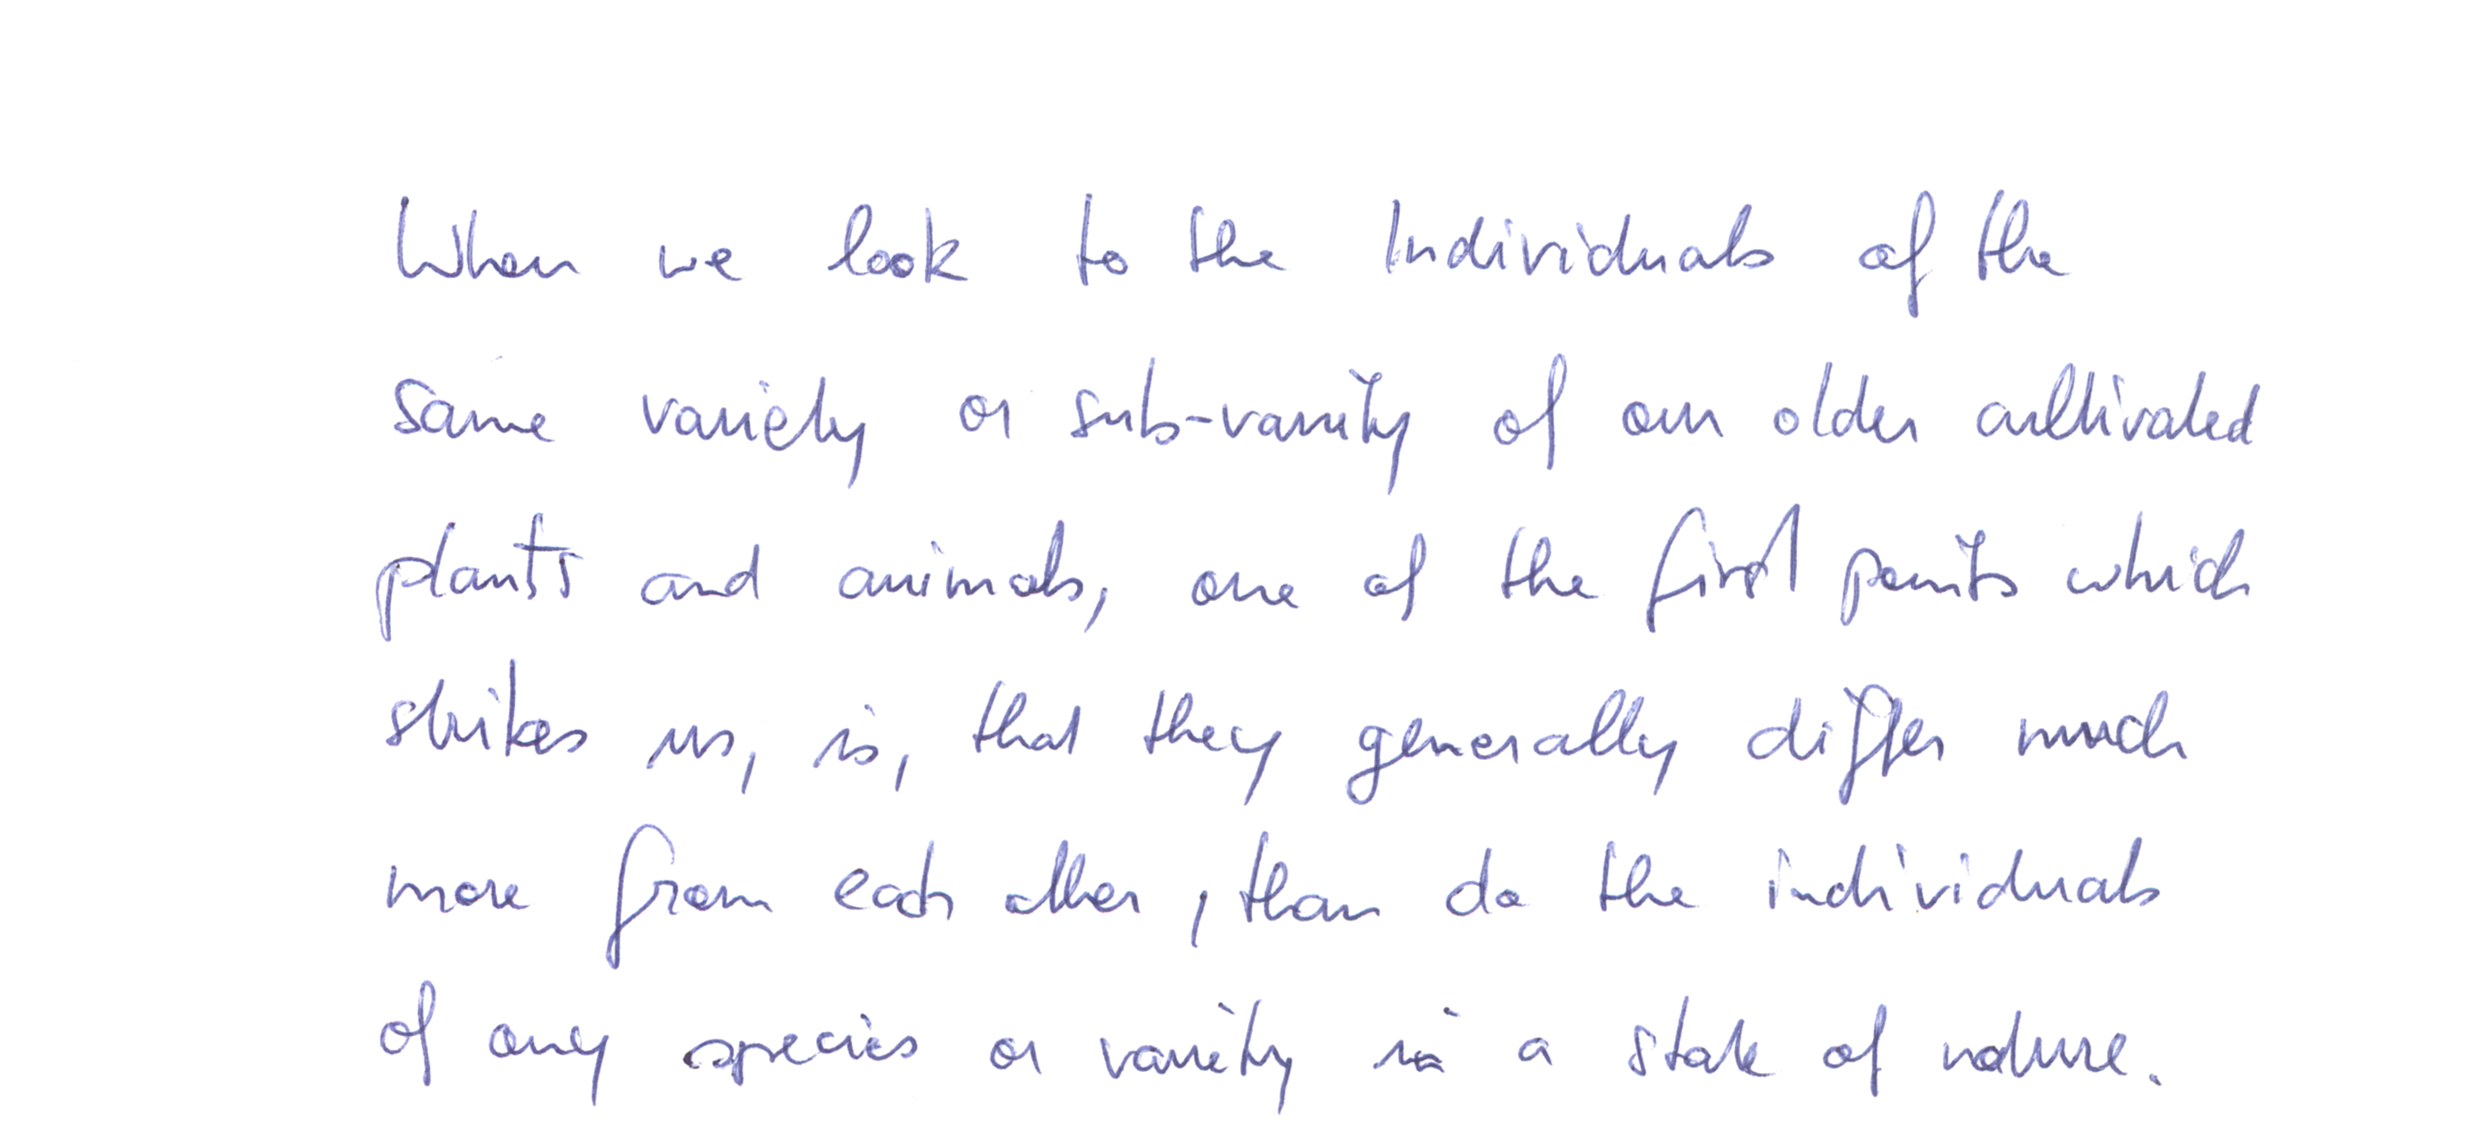 When we look to the Individuals of the
same variety or sub-variety of our older cultivated
plants and animals, one of the first points which
strikes us, is, that they generally differ much
more from each other, than do the individuals
of any species or variety in a state of nature.